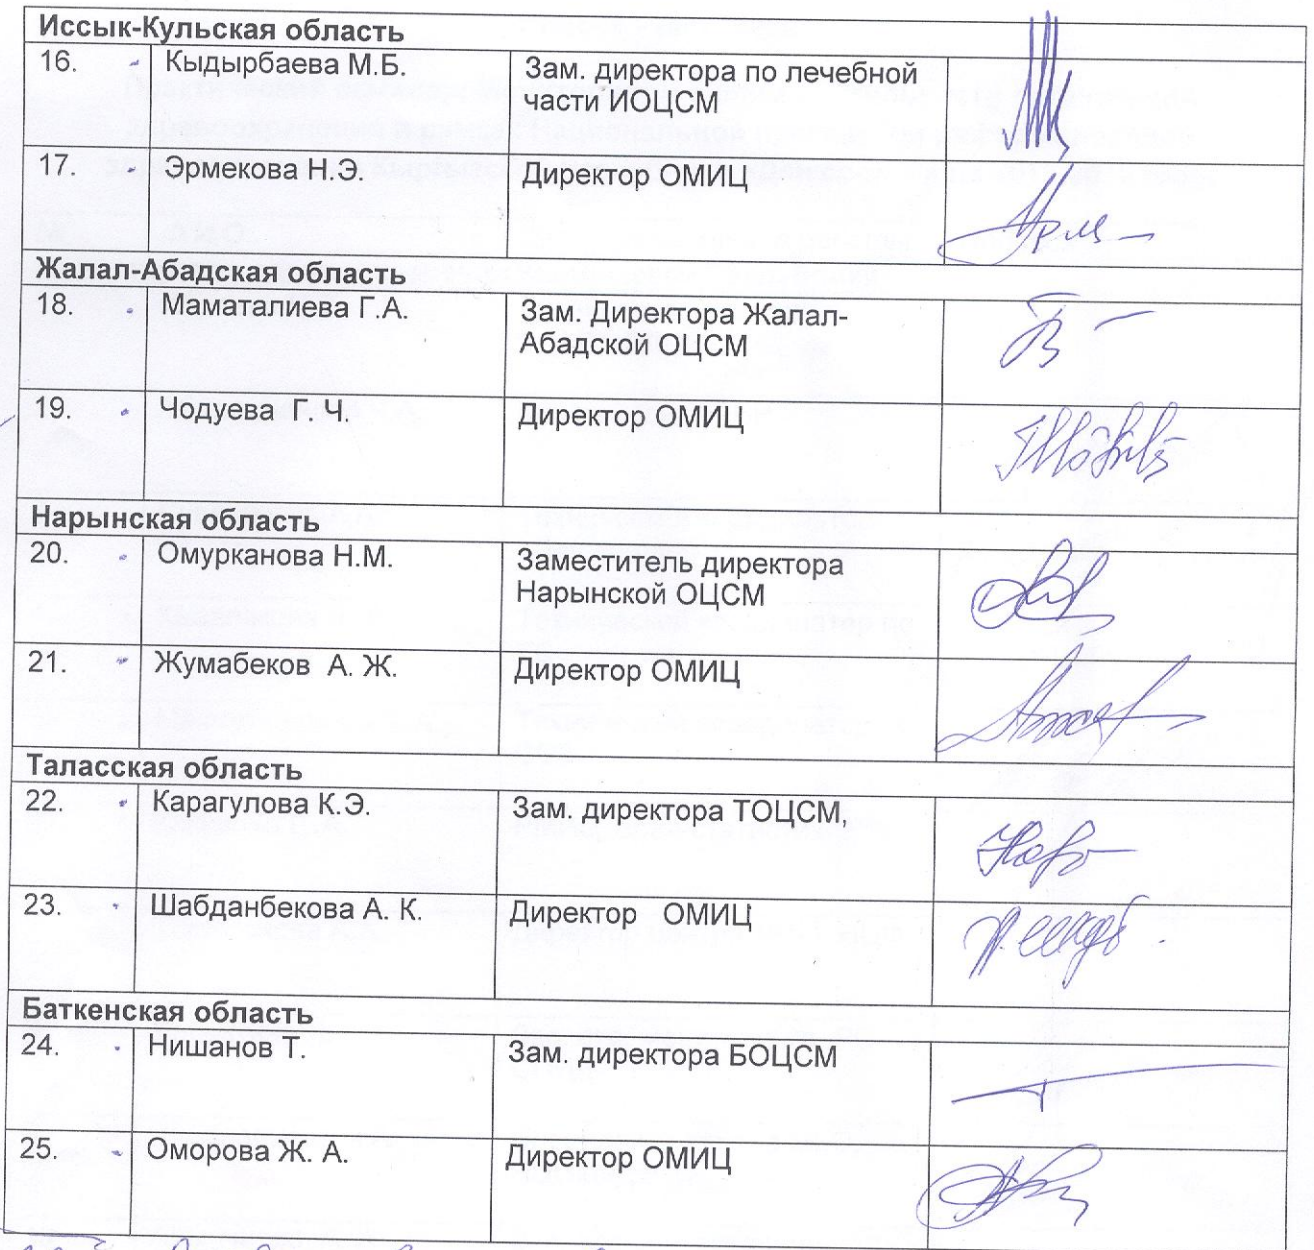 Иссык-Кульская область
16. Кыдырбаева М.Б. Зам. директора по лечебной
части ИОЦСМ
17. Эрмекова Н.Э. Директор ОМИЦ
Жалал-Абадская область
18. Маматалиева Г.А. Зам. Директора Жалал-
Абадской ОЦСМ
19. Чодуева Г. Ч. Директор ОМИЦ
Нарынская область
20. Омурканова Н.М. Заместитель директора
Нарынской ОЦСМ
21. Жумабеков А. Ж. Директор ОМИЦ
Таласская область
22. Карагулова К.Э. Зам. директора ТОЦСМ,
23. Шабданбекова А. К. Директор ОМИЦ
Баткенская область
24. Нишанов Т. Зам. директора БОЦСМ
25. Оморова Ж. А. Директор ОМИЦ